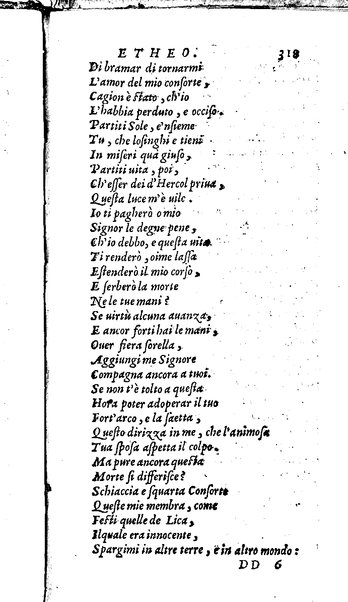 ETHEO. 318
Di bramar di tornarmi
L'amor del mio consorte,
Cagion è stato, ch'io
L'habbia perduto, e occiso.
Partiti Sole, e'nsieme
Tu, che losinghi e tieni
In miseri qua giuso,
Partiti uita, poi,
Ch'esser dei d'Hercol priua,
Questa luce m'è uile.
Io ti pagherò o mio
Signor le degne pene,
Ch'io debbo, e questa uita
Ti renderò, oime lassa
Estenderò il mio corso,
E serberò la morte
Ne le tue mani?
Se uirtù alcuna auanza,
E ancor forti hai le mani,
Ouer fiera sorella,
Aggiungi me Signore
Compagna ancora a tuoi.
Se non t'è tolto a questa
Hora poter adoperar il tuo
Fort'arco, e la saetta,
Questo dirizza in me, che l'animosa
Tua sposa aspetta il colpo.
Ma pure ancora questa
Morte si differisce?
Schiaccia e squarta Consorte
Queste mie membra, come
Festi quelle de Lica,
Ilquale era innocente,
Spargimi in altre terre, e in altro mondo:
DD 6